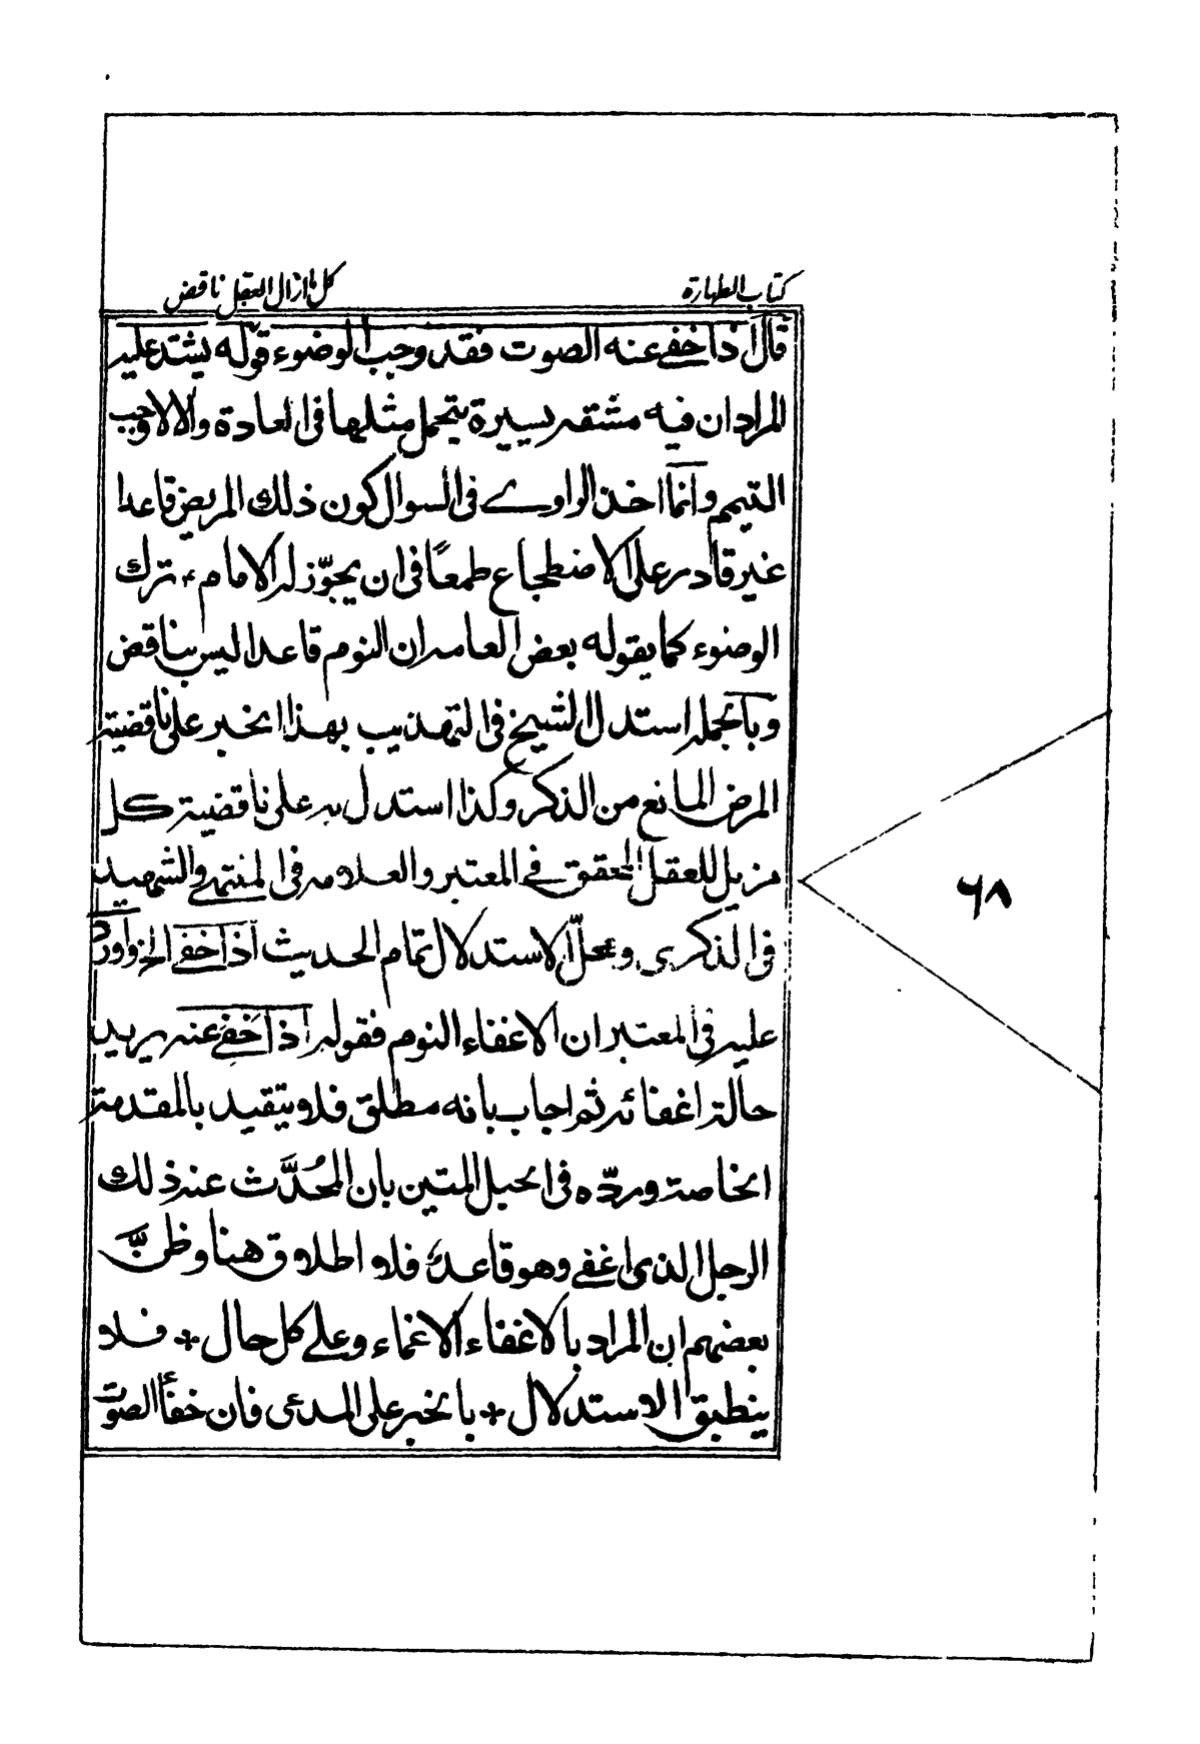 كتاب الطهارة
كل ما ازال العقل ناقض
قال اذا خفي عنه الصوت فقد وجب الوضوء قوله يشتد عليه
المراد ان فيه مشقة يسيرة يتحمل مثلها في العادة والا لاوجب
التيمم وانما اخذ الراوي في السوال كون ذلك المريض قاعدا
غير قادر على الاضطجاع طمعًا في ان يجوّز له الامامء ترك
الوضوء كما يقوله بعض العامه ان النوم قاعدا ليس بناقض
وبالجملة استدل الشيخ في التهذيب بهذا الخبر على ناقضية
المرض المانع من الذكر وكذا استدل به على ناقضية كل
مزيل للعقل المحقق في المعتبر والعلامه في المنتهي والشهيد
في الذكرى ومحلّ الاستدلال تمام الحديث اذا خفي الخ واورد
عليه في المعتبر ان الاغفاء النوم فقوله اذا خفي عنه يريد
حالة اغفائه ثم اجاب بانه مطلق فلا يتقيد بالمقدمة
الخاصة وردّه في الحبل المتين بان المُحدَّث عنه ذلك
الرجل الذى اغفي وهو قاعد فلا اطلاق هنا وظنّ
بعضهم ان المراد بالاغفاء الاغماء وعلي كل حال + فلا
ينطبق الاستدلال + بالخبر على المدعى فان خفأ الصوت
٦٨